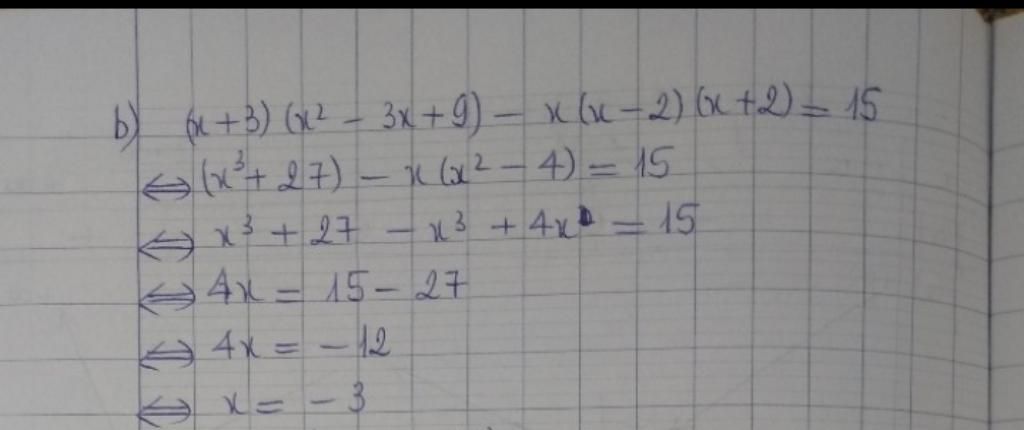 b) (x + 3) (x² - 3x + 9) - x (x - 2) (x + 2) = 15
⇔ (x³ + 27) - x (x² - 4) = 15
⇔ x³ + 27 - x³ + 4x = 15
⇔ 4x = 15 - 27
⇔ 4x = - 12
⇔ x = - 3